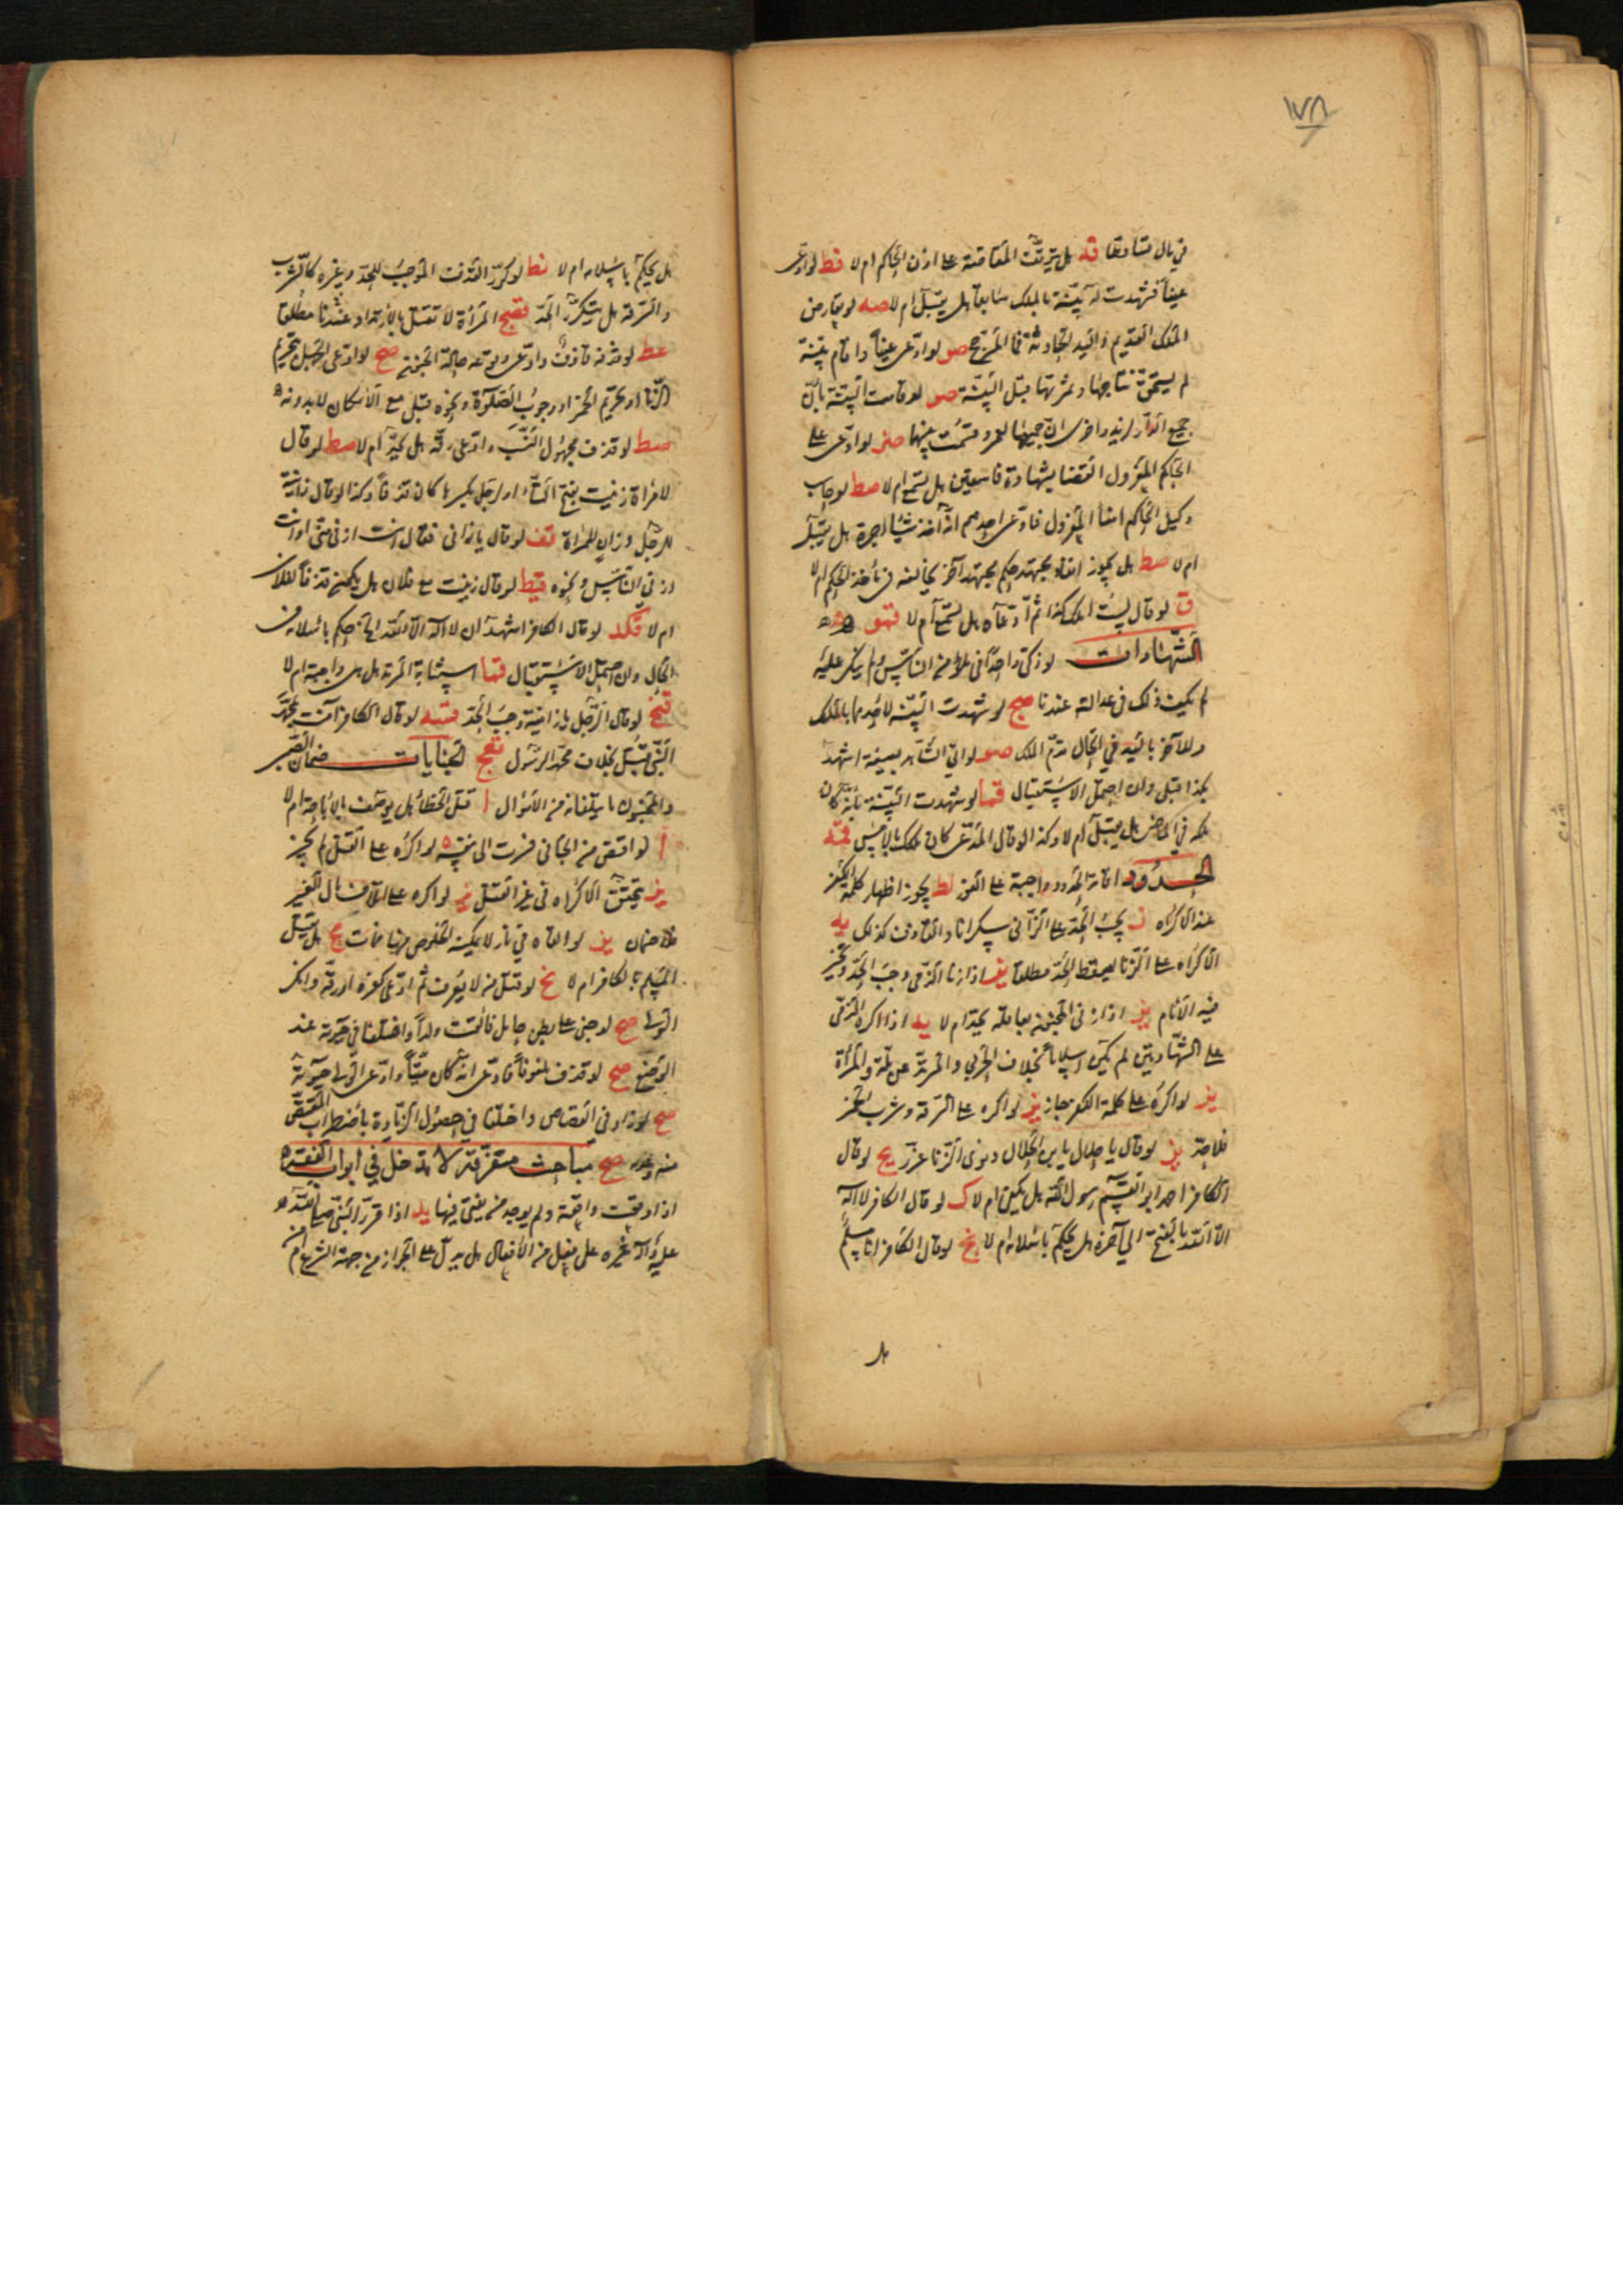 ١٧٨
في مال متنا وطا قد هل يتوقف المقاصة على اذن الحاكم ام لا قط لو ادعى
عيناً فشهدت له بينة بالملك سابقا هل يقبل ام لا صه لو تعارض
الملك القديم واليد الحادثة فما المرجح صو لو ادعى عيناً واقام بينة
لم يستحق نتاجها وثمرتها قبل البينة صو لو قامت البينة بان
جميع الدار لزيد واخرى ان جميعها لعمرو قسمت بينهما صز لو ادعى على
الحاكم المعزول القضا بشهادة فاسقين هل يسمع ام لا صط لو حاسب
وكيل الحاكم امنأ المعزول فادعى احدهم انه اخذ شيئا اجرة هل يقبل
ام لا صط هل يجوز انفاد مجتهد حكم مجتهد آخر يخالفه في مأخذ الحكم ام لا
ق لو قال ليست الملك كذا ثم ادعاه هل يسمع ام لا قمو
الشهادات لو زكى واحداً في ملاء من الناس ولم ينكر عليه
لم يكف ذلك في عدالته عندنا صح لو شهدت البينة لاحدهما بالملك
وللآخر باليد في الحال قدم الملك صو لو اتى الشاهد بصيغة اشهد
بكذا قبلى وان احتمل الاستقبال قما لو شهدت البينة بانه كان
ملكه في الماضي هل يقبل ام لا وكذا لو قال المدعى كان ملكك بالامس قمه
الحدود اقامة الحدود واجبة على الفور لط يجوز اظهار كلمة الكفر
عند الاكراه ن يجب الحد على الزانى سكرانا والقاذف كذلك يه
الاكراه على الزنا يسقط الحد مطلقا يف اذا زنا الذمى وجب الحد ويخير
فيه الامام يف اذا زنى المجنون بعاقلة يحد ام لا يد اذا اكره الذمى
على الشهادتين لم يكن اسلاما بخلاف الحربى والمرتد عن ملة والمرأة
يف لو اكره على كلمة الكفر جاز يف لو اكره على السرقة وشرب الخمر
فلا حد يف لو قال يا حلال يا بن الحلال ونوى الزنا عزر يح لو قال
الكافر احمد ابو القسم رسول الله هل يكفى ام لا ك لو قال الكافر لا اله
الا الله بالفتح الى آخره هل يحكم باسلامه ام لا نخ لو قال الكافر انا مسلم
هل
هل يحكم باسلامه ام لا نط لو كرر القذف الموجب للحد وغيره كالشرب
والسرقة هل يتكرر الحد قصح المرأة لا تقتل بالارتداد عندنا مطلقا
عط لو قذفه قاذف وادعى وقوعه حالة الجنون صح لو ادعى الجهل بتحريم
الزنا او تحريم الخمر او وجوب الصلوة ونحوه قبل مع الامكان لا بدونه
صط لو قذف مجهول النسب وادعى رقه هل يحد ام لا صط لو قال
لامرأة زنيت بفتح التاء او لرجل بكسرها كان قذفا وكذا لو قال زانية
للرجل وزان للمرأة قف لو قال يا زانى فقال انت ازنى منى او انت
ازنى الناس ونحوه قيط لو قال زنيت مع فلان هل يكون قذفا لفلان
ام لا قكد لو قال الكافر اشهد ان لا اله الا الله الخ حكم باسلامه في
الحال وان احتمل الاستقبال قما استتابة المرتد هل هي واجبة ام لا
قنح لو قال الرجل يا زانية وجب الحد قنيه لو قال الكافر آمنت بمحمد
النبى قبل بخلاف محمد الرسول قعح الجنايات ضمان الصبى
والمجنون ما يتلفانه من الاموال ا قتل الخطأ هل يوصف بالاباحة ام لا
ا لو اقتص من الجانى فسرت الى نفسه ه لو اكره على القتل لم يجز
يف يتحقق الاكراه في غير القتل يز لو اكره على اتلاف مال الغير
فلا ضمان يف لو القاه في نار لا يمكنه التخلص منها فمات يح هل يقتل
المسلم بالكافر ام لا نخ لو قتل من لا يعرف ثم ادعى كفره او رقه وانكر
الولى صح لو جنى على بطن حامل فالقت ولداً واختلفا في حيوته عند
الوضع صح لو قذف ملفوفاً فادعى انه كان ميتاً وادعى الولى حيوته
صح لو زاد في القصاص واختلفا في حصول الزيادة باضطراب المقتص
منه وعدمه صح مباحث متفرقة لا تدخل في ابواب الفقه
اذا وقعت واقعة ولم يوجد من يفتى فيها يد اذا قرر النبى صلى الله
عليه وآله غيره على فعل من الافعال هل يدل على الجواز من جهة الشرع ام